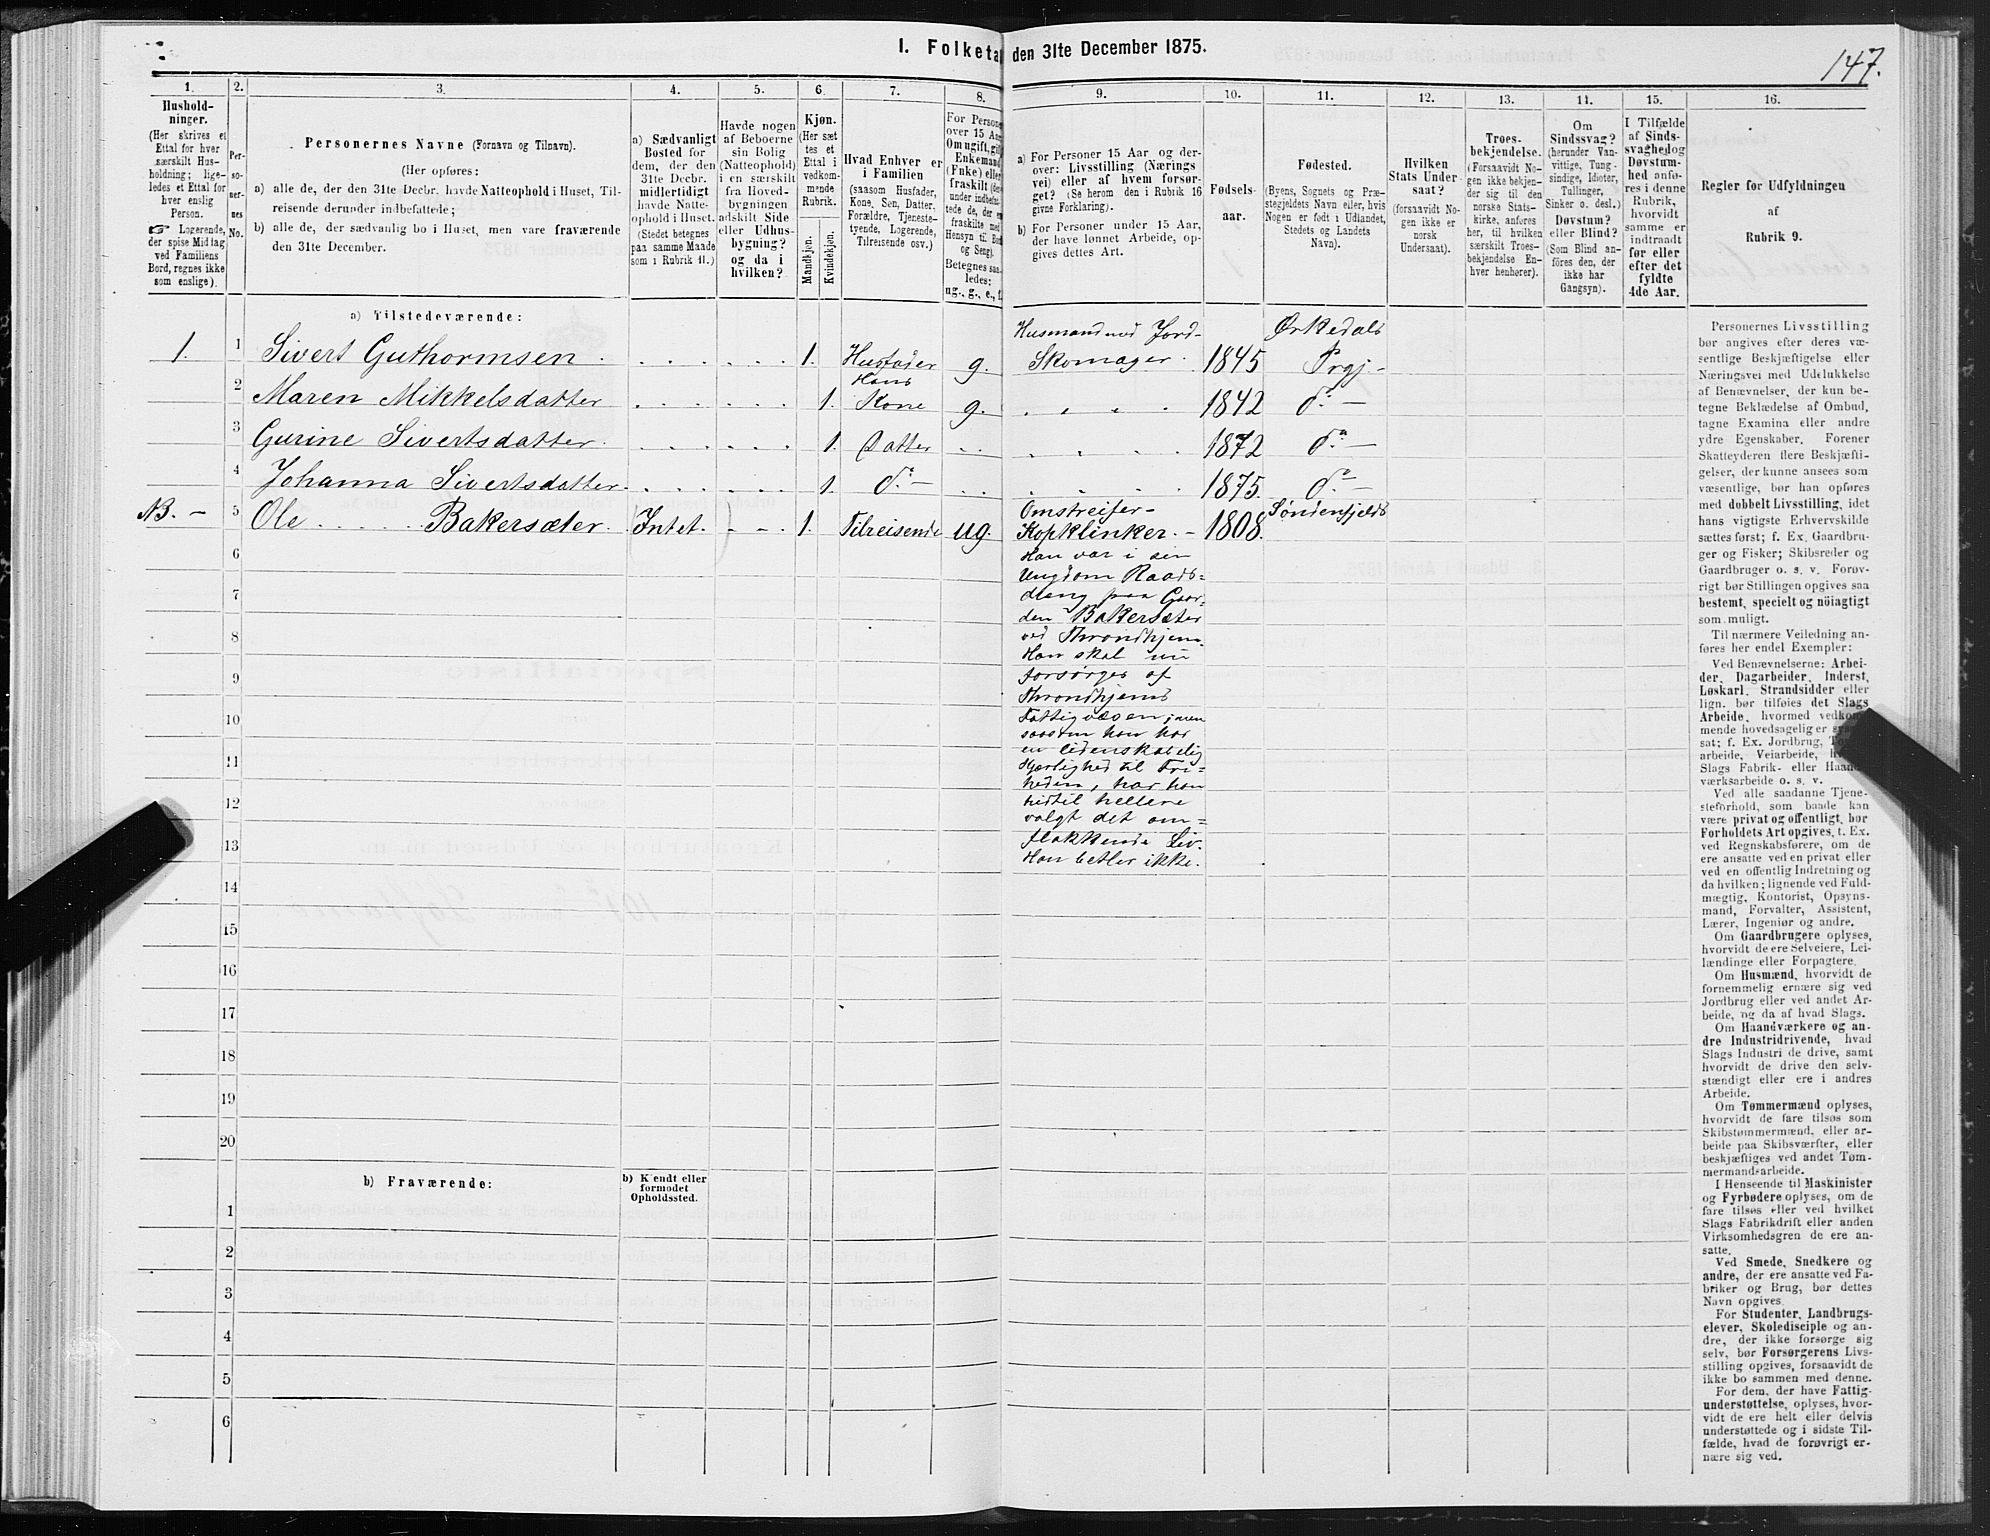 147.
I. Folketa den 31te December 1875.
1.
Hushold-
ninger.
(Her skrives et
Ettal for hver
særskilt Hus-
holdning; lige-
ledes et Ettal for
hver enslig
Person.
☞ Logerende,
der spise Middag
ved Familiens
Bord, regnes ikke
som enslige).
2.
Per-
so-
ner-
nes
No.
3.
Personernes Navne (Fornavn og Tilnavn).
(Her opføres:
a) alle de, der den 31te Decbr. havde Natteophold i Huset, Til-
reisende derunder indbefattede;
b) alle de, der sædvanlig bo i Huset, men vare fraværende
den 31te December.
4.
a) Sædvanligt
Bosted for
dem, der den
31te Decbr.
midlertidigt
havde Natte-
ophold i Huset.
(Stedet betegnes
paa samme Maade
som i Rubrik 11.)
5.
Havde nogen
af Beboerne
sin Bolig
(Natteophold)
i en særskilt
fra Hoved-
bygningen
adskilt Side
eller Udhus-
bygning?
og da i
hvilken?
6.
Kjøn.
(Her sæt
tes et
Ettal i
vedkom-
mende
Rubrik.
Mandkjøn.
Kvindekjøn.
7.
Hvad Enhver er
i Familien
(saasom Husfader,
Kone, Søn, Datter,
Forældre, Tjeneste-
tyende, Logerende,
Tilreisende osv.)
8.
For Persone
over 15 Aar
Om ugift, gift
Enkemand
(Enke) eller
fraskilt (der
under indbefat-
tede de, der er
fraskilte med
Hensyn til Bor
og Seng).
Betegnes saa-
ledes:
ug., g., e., f.
9.
a) For Personer 15 Aar og der-
over: Livsstilling (Nærings
vei) eller af hvem forsør-
get? (Se herom den i Rubrik 16
givne Forklaring).
b) For Personer under 15 Aar,
der have lønnet Arbeide, op-
gives dettes Art.
10.
Fødsels-
aar.
11.
Fødested.
(Byens, Sognets og Præ-
stegjeldets Navn eller, hvis
Nogen er født i Udlandet,
Stedets og Landets
Navn).
12.
Hvilken
Stats Under
saat?
(forsaavidt No-
gen ikke er
norsk
Undersaat).
13.
Troes-
bekjendelse.
(Forsaavidt No-
gen ikke bekjen-
der sig til den
norske Stats-
kirke, anføres
her, til hvilken
særskilt Troes-
bekjendelse En-
hver henhører).
14.
Om
Sindssvag?
(herunder Van-
vittige, Tung-
sindige, Idioter,
Tullinger,
Sinker o. desl.)
Døvstum?
eller Blind?
(Som Blind an-
føres den, der
ikke har
Gangsyn).
15.
I Tilfælde
af Sinds-
svaghed og
Døvstum-
hed anfø-
res i denne
Rubrik,
hvorvidt
samme er
indtraadt
før eller
efter det
fyldte
4de Aar.
16.
Regler for Udfyldningen
af
Rubrik 9.
a) Tilstedeværende:
1. 1 Sivert Guthormsen 1. Husfader g. Husmand med Jord- Skomager. 1845 Ørkedals Prgj-
2 Maren Mikkelsdatter 1. Hans Kone g. 1842 do -
3 Gurine Sivertsdatter 1. Datter 1872 do -
4 Johanna Sivertsdatter 1. do - 1875 do -
NB. - 5 Ole Bakersæter. Intet. 1. Tilreisende ug. Omstreifer- Kopklinker. - 1808. Søndenfjelds
Han var i sin
Ungdom Raads=
dreng paa Gaar=
den Bakersæter
ved Throndhjem.
Han skal nu
forsørges af
Throndhjems
Fattigvæsen; men
saasom han har
en lidenskabelig
Kjærlighed til Fri=
heden, har han
hidtil hellere
valgt det om=
flakkende Liv.
Han betler ikke.
6
7
8
9
10
11
12
13
14
15
16
17
18
19
20
b) Fraværende:
b) Kjendt eller
formodet
Opholdssted.
1
2
3
4
5
6
Personernes Livsstilling
bør angives efter deres væ-
sentlige Beskjæftigelse eller
Næringsvei med Udelukkelse
af Benævnelser, der kun be-
tegne Beklædelse af Ombud,
tagne Examina eller andre
ydre Egenskaber. Forener
Skatteyderen flere Beskjæfti-
gelser, der kunne ansees som
væsentlige, bør han opføres
med dobbelt Livsstilling, idet
hans vigtigste Erhvervskilde
sættes først; f. Ex. Gaardbru-
ger og Fisker; Skibsreder og
Gaardbruger o. s. v. Forøv-
rigt bør Stillingen opgives saa
bestemt, specielt og nöiagtigt
som muligt.
Til nærmere Veiledning an-
føres her endel Exempler:
Ved Benævnelserne: Arbei-
der, Dagarbeider, Inderst,
Løskarl, Strandsidder eller
lign. bør tilføies det Slags
Arbeide, hvormed vedkom-
mende hovedsagelig er
sat; f. Ex. Jordbrug,
arbeide, Veiarbeide,
Slags Fabrik- eller Haand-
værksarbeide o. s. v.
Ved alle saadanne Tjene-
steforhold, som baade kan
være privat og offentligt, bør
Forholdets Art opgives, t. Ex.
ved Regnskabsførere, om de
ere ansatte ved en privat eller
ved en offentlig Indretning og
da hvilken; lignende ved Fuld-
mægtig, Kontorist, Opsyns-
mand, Forvalter, Assistent,
Lærer, Ingeniør og andre.
Om Gaardbrugere oplyses,
hvorvidt de ere Selveiere, Lei-
lændinge eller Forpagtere.
Om Husmænd, hvorvidt de
fornemmelig ernære sig ved
Jordbrug eller ved andet Ar-
beide, og da af hvad Slags.
Om Haandværkere og an-
dre Industridrivende, hvad
Slags Industri de drive, samt
hvorvidt de drive den selv-
stændigt eller ere i andres
Arbeide.
Om Tømmermænd oplyses,
hvorvidt de fare tilsøs som
Skibstømmermænd, eller ar-
beide paa Skibsværfter, eller
beskjæftiges ved andet Tøm-
mermandsarbeide.
I Henseende til Maskinister
og Fyrbødere oplyses, om de
fare tilsøs eller ved hvilket
Slags Fabrikdrift eller anden
Virksomhedsgren de ere an-
satte.
Ved Smede, Snedkere og
andre, der ere ansatte ved Fa-
briker og Brug, bør dettes
Navn opgives.
For Studenter, Landbrugs-
elever, Skoledisciple og an-
dre, der ikke forsørge sig
selv, bør Forsørgerens Livs-
stilling opgives, forsaavidt de
ikke bo sammen med denne.
For dem, der have Fattig-
understøttelse, oplyses, hvor-
vidt de ere helt eller delvis
understøttede og i sidste Til-
fælde, hvad de forøvrigt er-
nære sig ved.